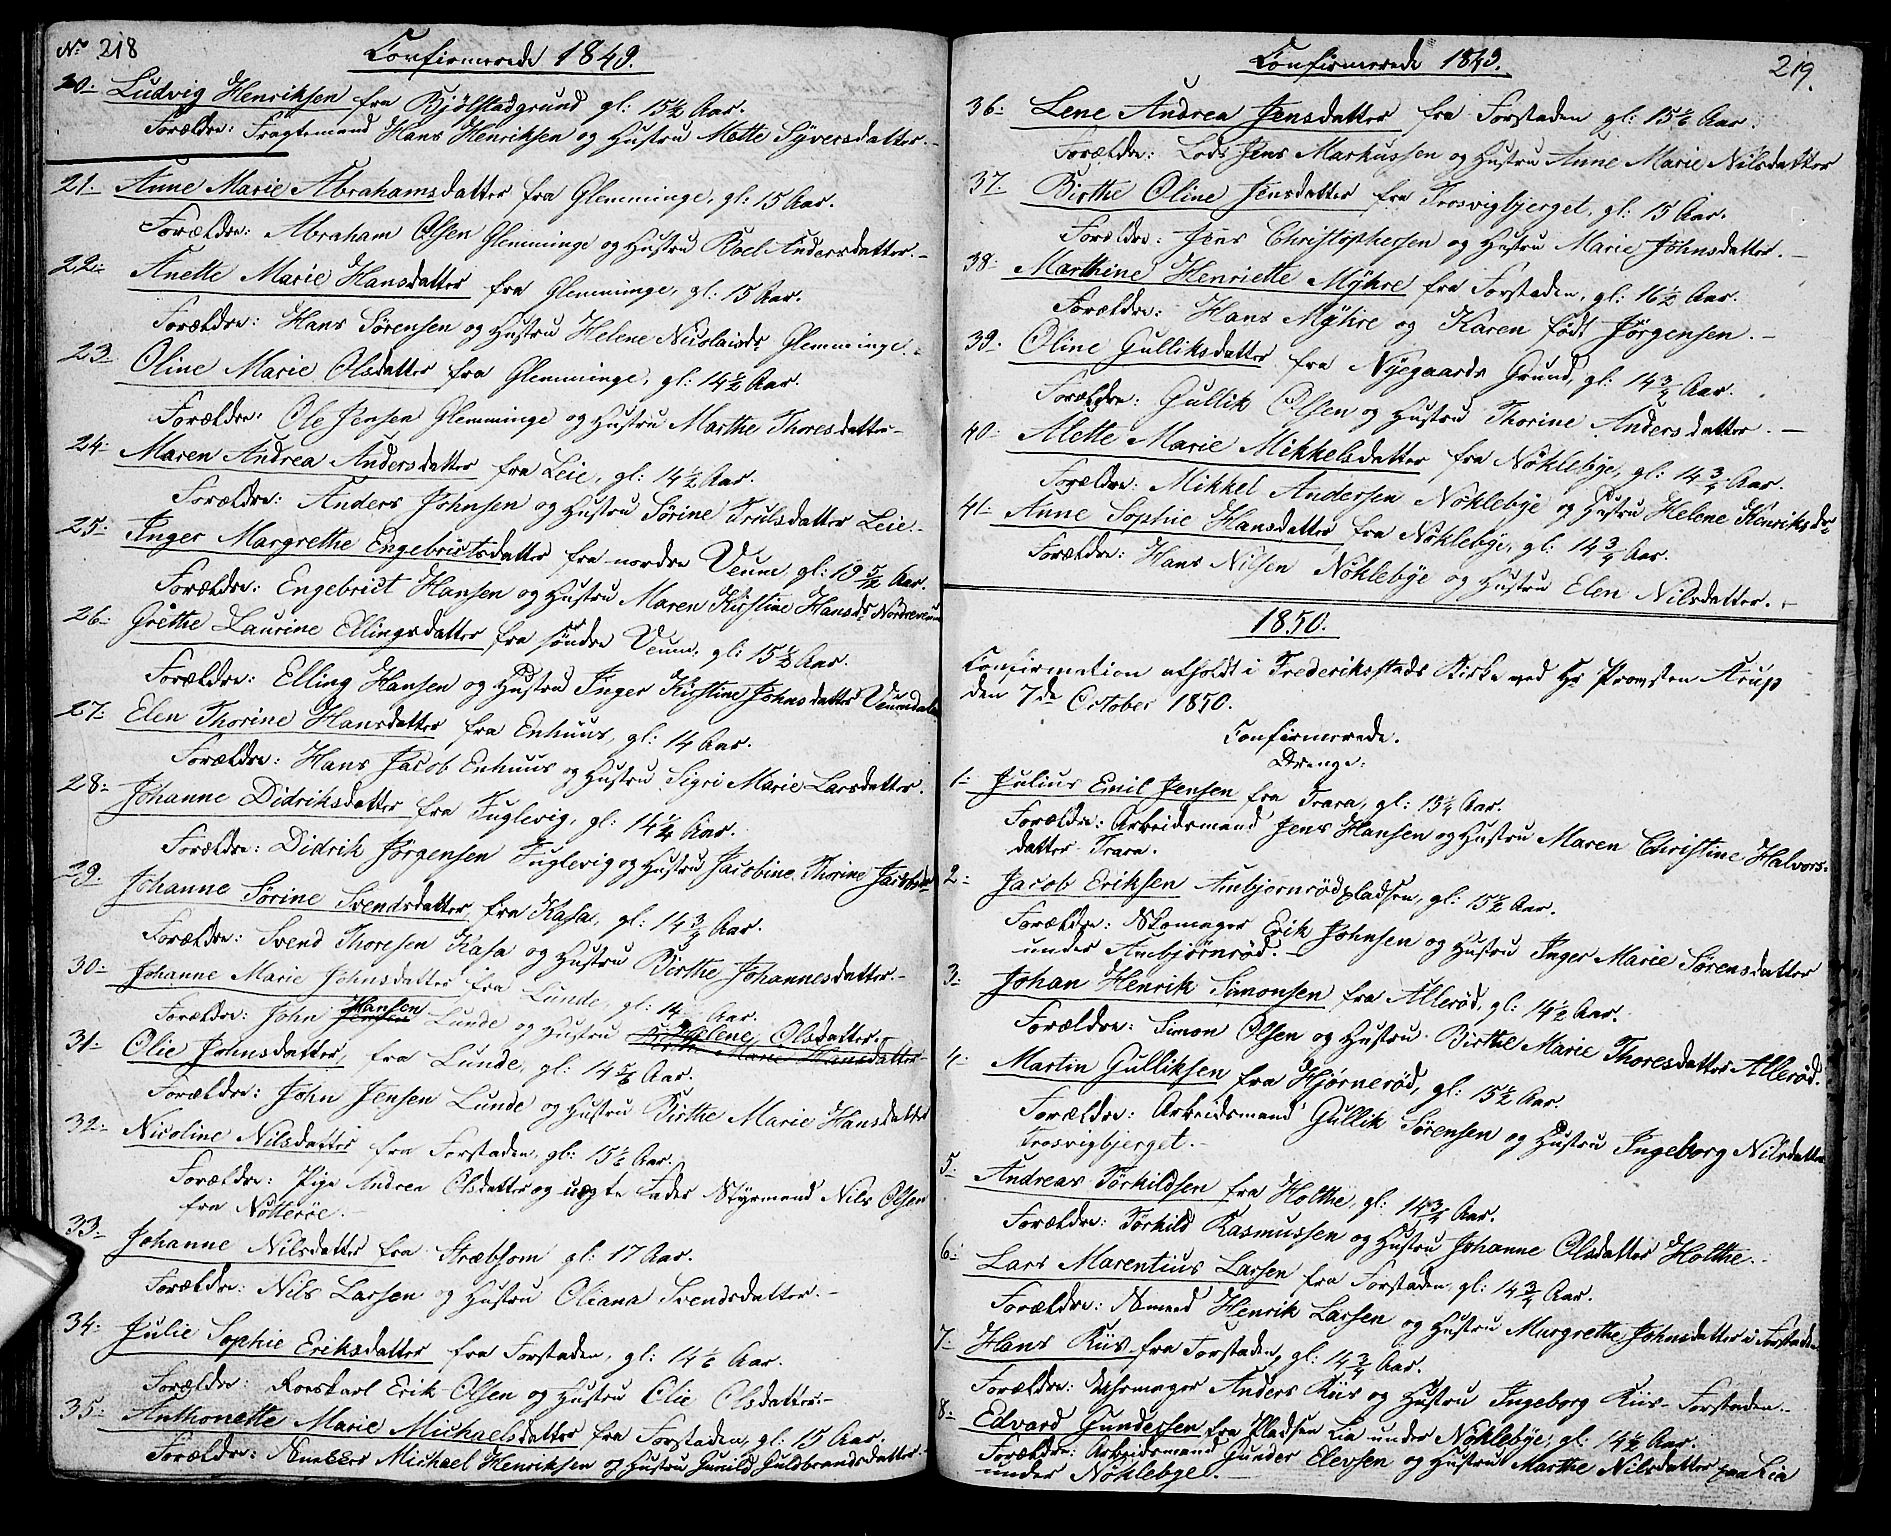 No 218 Confirmerede 1849.
20. Ludvig Henriksen fra Bjölstadgrund gl: 15½ Aar.
Forældre: Fragtemand Hans Henriksen og Hustru Mette Syversdatter.
21. Anne Marie Abrahamsdatter fra Glemminge, gl: 15 Aar.
Forældre: Abraham Olsen Glemminge og Hustru Boel Andersdatter.
22. Anette Marie Hansdatter fra Glemminge, gl: 15 Aar.
Forældre: Hans Sørensen og Hustru Helene Nicolaisdr Glemminge.
23. Oline Marie Olsdatter fra Glemminge, gl: 14½ Aar.
Forældre: Ole Jensen Glemminge og Hustru Marthe Thoresdatter
24. Maren Andrea Andersdatter fra Leie, gl: 14½ Aar.
Forældre: Anders Johnsen og Hustru Sørine Trulsdatter Leie.
25. Inger Margrethe Engebrictsdatter fra nordre Veum, gl: Aar.
Forældre: Engebrict Hansen og Hustru Maren Kirstine Hansdr Nordreveum
26. Grethe Laurine Ellingsdatter fra søndre Veum, gl: 15½ Aar.
Forældre: Elling Hansen og Hustru Inger Kirstine Johnsdatter Veumdalen
27. Elen Thorine Hansdatter fra Enhuus, gl: 14 Aar.
Forældre: Hans Jacob Enhuus og Hustru Sigri Marie Larsdatter.
28. Johanne Didriksdatter fra Fuglevig, gl: 14½ Aar.
Forældre: Didrik Jørgensen Fuglevig og Hustru Jacobine Thorine Jacobsdr
29. Johanne Sørine Svendsdatter fra Kasa, gl: 14¾ Aar.
Forældre: Svend Thoresen Kasa og Hustru Birthe Johannesdatter.
30. Johanne Marie Johnsdatter fra Lunde, gl: 14 Aar.
Forældre: John Hansen Lunde og Hustru Helene Olsdatter.
31. Olie Johnsdatter, fra Lunde, gl: 14 Aar.
Forældre: John Jensen Lunde og Hustru Birthe Marie Hansdatter
32. Nicoline Nilsdatter fra Forstaden, gl: 15½ Aar.
Forældre: Pige Andrea Olsdatter og uægte Fader Styrmand Nils Olsen
fra Nøtterøe.
33. Johanne Nilsdatter fra Stræbsom gl: 17 Aar.
Forældre: Nils Larsen og Hustru Oliana Svendsdatter.
34. Julie Sophie Eriksdatter fra Forstaden, gl: 14½ Aar.
Forældre: Roeskarl Erik Olsen og Hustru Olie Olsdatter.
35. Anthonette Marie Michaelsdatter fra Forstaden, gl: 15 Aar.
Forældre: Michael Henriksen og Hustru Gunild Guldbrandsdatter.
Confirmerede 1849. 219.
36. Lene Andrea Jensdatter fra Forstaden gl: 15½ Aar.
Forældre: Lods Jens Markussen og Hustru Anne Marie Nilsdatter
37. Birthe Oline Jensdatter fra Trosvigbjerget, gl: 15 Aar.
Forældre: Jens Christophersen og Hustru Marie Johnsdatter.
38. Marthine Henriette Myhre fra Forstaden, gl: 16½ Aar.
Forældre: Hans Myhre og Karen født Jörgensen.
39. Oline Gulliksdatter fra Nyegaards Grund, gl: 14¾ Aar.
Forældre: Gullik Olsen og Hustru Thorine Andersdatter.
40. Alette Marie Mikkelsdatter fra Nöklebye, gl: 14¾ Aar.
Forældre: Mikkel Andersen Nöklebye og Hustru Helene Henriksdr
41. Anne Sophie Hansdatter fra Nöklebye, gl: 14¾ Aar.
Forældre: Hans Nilsen Nöklebye og Hustru Elen Nilsdatter.
1850.
Confirmation afholdt i Frederiksstads Kirke ved Hr Provsten Arup
den 7de October 1850.
Confirmerede.
Drenge:
1. Julius Emil Jensen fra Trara, gl: 15½ Aar.
Forældre: Arbeidsmand Jens Hansen og Hustru Maren Christine Halvors-
datter Trara.
2. Jacob Eriksen Ambjornrödpladsen, gl: 15½ Aar.
Forældre: Skomager Erik Johnsen og Hustru Inger Marie Sörensdatter
under Ambjørnrød.
3. Johan Henrik Simonsen fra Allerød, gl: 14½ Aar.
Forældre: Simon Olsen og Hustru Birthe Marie Thoresdatter Allerød.
4. Martin Gulliksen fra Hjørnerød, gl: 15½ Aar.
Forældre: Arbeidsmand Gullik Sørensen og Hustru Ingeborg Nilsdatter
Trosvigbjerget.
5. Andreas Törkildsen fra Holthe, gl: 14¾ Aar.
Forældre: Törkild Rasmussen og Hustru Johanne Olsdatter Holthe.
6. Lars Marentius Larsen fra Forstaden, gl: 14¾ Aar.
Forældre: Henrik Larsen og Hustru Margrethe Johnsdatter i Forstaden
7. Hans Kiis fra Forstaden, gl: 14¾ Aar.
Forældre: Uhrmager Anders Kiis og Hustru Ingeborg Kiis Forstaden.
8. Edvard Gundersen fra Pladsen Lia under Nöklebye, gl: 14½ Aar.
Forældre: Arbeidsmand Gunder Elevsen og Hustru Marthe Nilsdatter paa Lia
under Nöklebye.